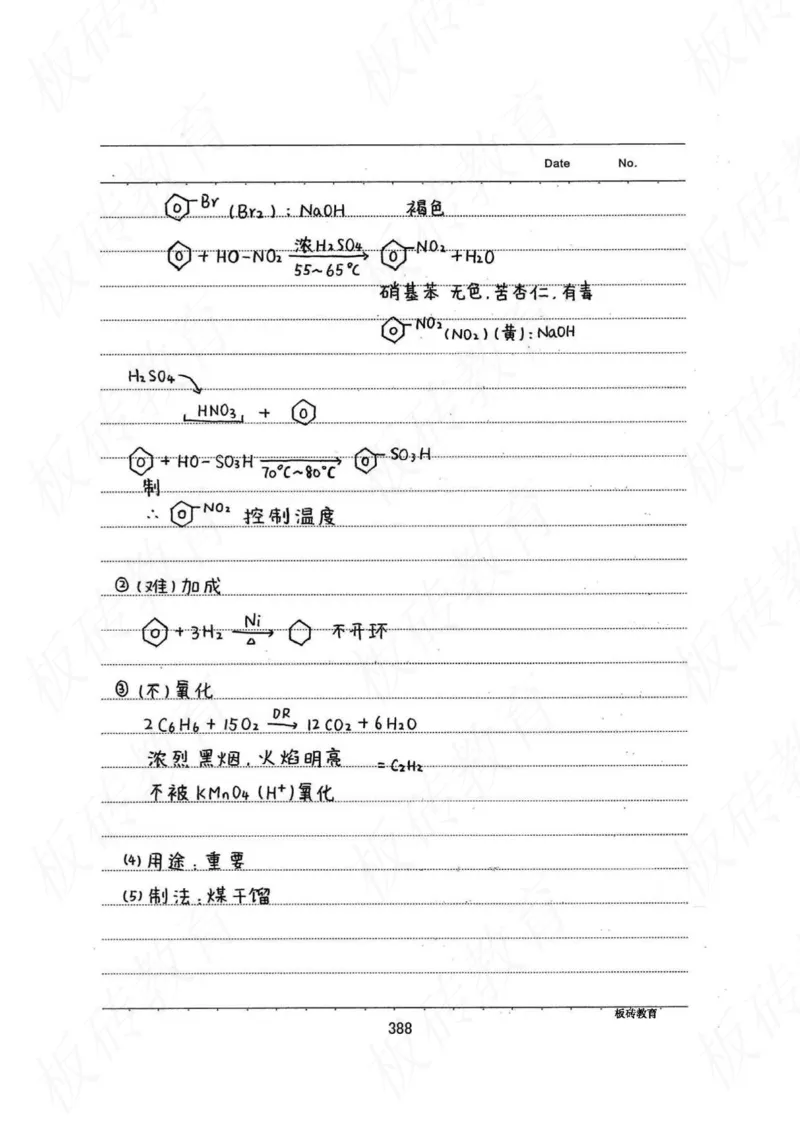 Date No.
⌬-Br (Br₂): NaOH 褐色
⌬ + HO-NO₂ 浓H₂SO₄ 55~65℃ → ⌬-NO₂ + H₂O
硝基苯 无色,苦杏仁,有毒
⌬-NO₂ (NO₂)(黄): NaOH
H₂SO₄
HNO₃ + ⌬
⌬ + HO-SO₃H 70℃~80℃ → ⌬-SO₃H
制
∴ ⌬-NO₂ 控制温度
② (难)加成
⌬ + 3H₂ Ni △ → ⬡ 不开环
③ (不)氧化
2C₆H₆ + 15O₂ DR → 12CO₂ + 6H₂O
浓烈黑烟,火焰明亮 = C₂H₂
不被KMnO₄(H⁺)氧化
(4) 用途:重要
(5) 制法:煤干馏
板砖教育
388